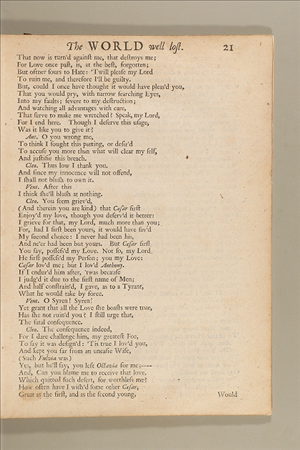 The WORLD well lost. 21
That now is turn'd against me, that destroys me;
For Love once past, is, at the best, forgotten;
But oftner sours to Hate: 'Twill please my Lord
To ruin me, and therefore I'll be guilty.
But, could I once have thought it would have pleas'd you,
That you would pry, with narrow searching Eyes,
Into my faults; severe to my destruction;
And watching all advantages with care,
That serve to make me wretched? Speak, my Lord,
For I end here. Though I deserve this usage,
Was it like you to give it?
Ant. O you wrong me,
To think I sought this parting, or desir'd
To accuse you more than what will clear my self,
And justifie this breach.
Cleo. Thus low I thank you.
And since my innocence will not offend,
I shall not blush to own it.
Vent. After this
I think she'll blush at nothing.
Cleo. You seem griev'd,
(And therein you are kind) that Cæsar first
Enjoy'd my love, though you deserv'd it better:
I grieve for that, my Lord, much more than you;
For, had I first been yours, it would have sav'd
My second choice: I never had been his,
And ne'er had been but yours. But Cæsar first
You say, possess'd my Love. Not so, my Lord:
He first possess'd my Person; you my Love:
Cæsar lov'd me; but I lov'd Anthony.
If I endur'd him after, 'twas because
I judg'd it due to the first name of Men;
And half constrain'd, I gave, as to a Tyrant,
What he would take by force.
Vent. O Syren! Syren!
Yet grant that all the Love she boasts were true,
Has she not ruin'd you? I still urge that,
The fatal consequence.
Cleo. The consequence indeed,
For I dare challenge him, my greatest Foe,
To say it was design'd: 'Tis true I lov'd you,
And kept you far from an uneasie Wife,
(Such Fulvia was)
Yes, but he'll say, you left Octavia for me:—
And, Can you blame me to receive that love,
Which quitted such desert, for worthless me?
How often have I wish'd some other Cæsar,
Great as the first, and as the second young,
Would